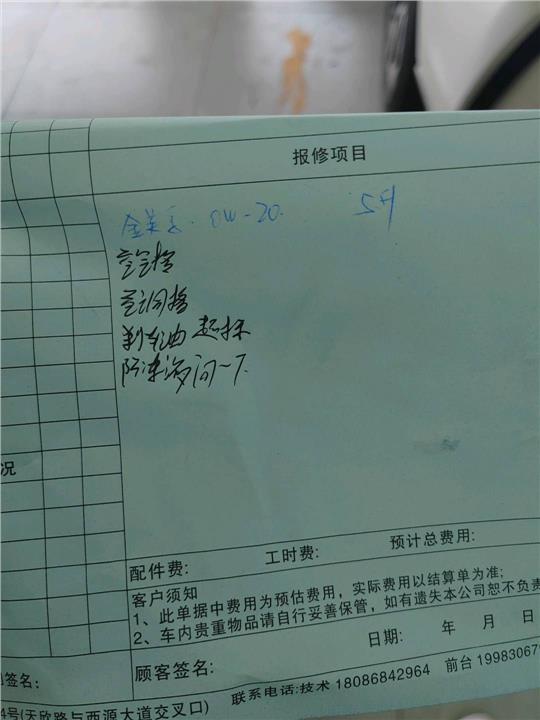 报修项目
金美孚 0W-20. 5升
空气格
空调格
刹车油 超标
防冻液 问一下.
况
配件费: 工时费: 预计总费用:
客户须知
1、此单据中费用为预估费用，实际费用以结算单为准;
2、车内贵重物品请自行妥善保管，如有遗失本公司恕不负责
日期: 年 月 日
签名: 顾客签名:
4号(天欣路与西源大道交叉口) 联系电话:技术 18086842964 前台 19983067